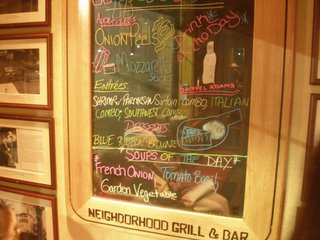 Appetizers:
Onion Peels
Drink
of the Day*
Mozzarella
Sticks
Samuel Adams
Entrées:
Shrimp/Parmesan/Sirloin Combo, Italian
Combo, Southwest Combo
Desserts:
Blue Ribbon Brownie
*Soups of the Day*
*French Onion, Tomato Basil,
Garden Vegetable
NEIGHBORHOOD GRILL & BAR